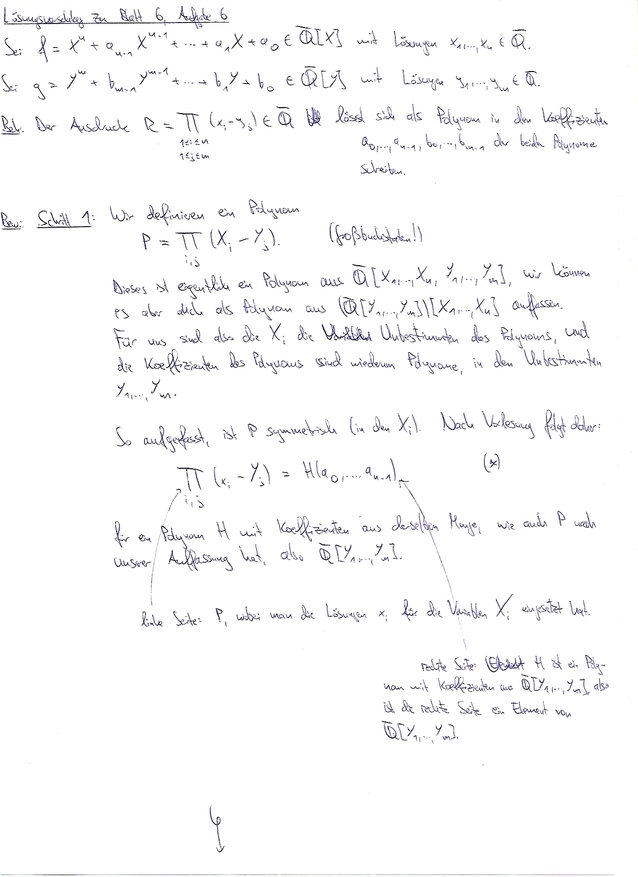 Lösungsvorschlag zu Blatt 6, Aufgabe 6
Sei f = Xⁿ + aₙ₋₁Xⁿ⁻¹ + ··· + a₁X + a₀ ∈ ℚ̄[X] mit Lösungen x₁,...,xₙ ∈ ℚ̄.
Sei g = Yᵐ + bₘ₋₁Yᵐ⁻¹ + ··· + b₁Y + b₀ ∈ ℚ̄[Y] mit Lösungen y₁,...,yₘ ∈ ℚ̄.
Beh. Der Ausdruck R = ∏ (xᵢ-yⱼ) ∈ ℚ̄ lässt sich als Polynom in den Koeffizienten
1≤i≤n
1≤j≤m
a₀,...,aₙ₋₁, b₀,...,bₘ₋₁ der beiden Polynome
schreiben.
Bew: Schritt 1: Wir definieren ein Polynom
P = ∏ (Xᵢ - Yⱼ). (Großbuchstaben!)
i,j
Dieses ist eigentlich ein Polynom aus ℚ̄[X₁,...,Xₙ, Y₁,...,Yₘ], wir können
es aber auch als Polynom aus (ℚ̄[Y₁,...,Yₘ])[X₁,...,Xₙ] auffassen.
Für uns sind also die Xᵢ die Unbestimmten des Polynoms, und
die Koeffizienten des Polynoms sind wiederum Polynome, in den Unbestimmten
Y₁,...,Yₘ.
So aufgefasst, ist P symmetrisch (in den Xᵢ). Nach Vorlesung folgt daher:
∏ (xᵢ - Yⱼ) = H(a₀,...,aₙ₋₁), (*)
i,j
für ein Polynom H mit Koeffizienten aus derselben Menge, wie auch P nach
unserer Auffassung hat, also ℚ̄[Y₁,...,Yₘ].
linke Seite: P, wobei man die Lösungen xᵢ für die Variablen Xᵢ eingesetzt hat.
rechte Seite: H ist ein Poly-
nom mit Koeffizienten aus ℚ̄[Y₁,...,Yₘ], also
ist die rechte Seite ein Element von
ℚ̄[Y₁,...,Yₘ].